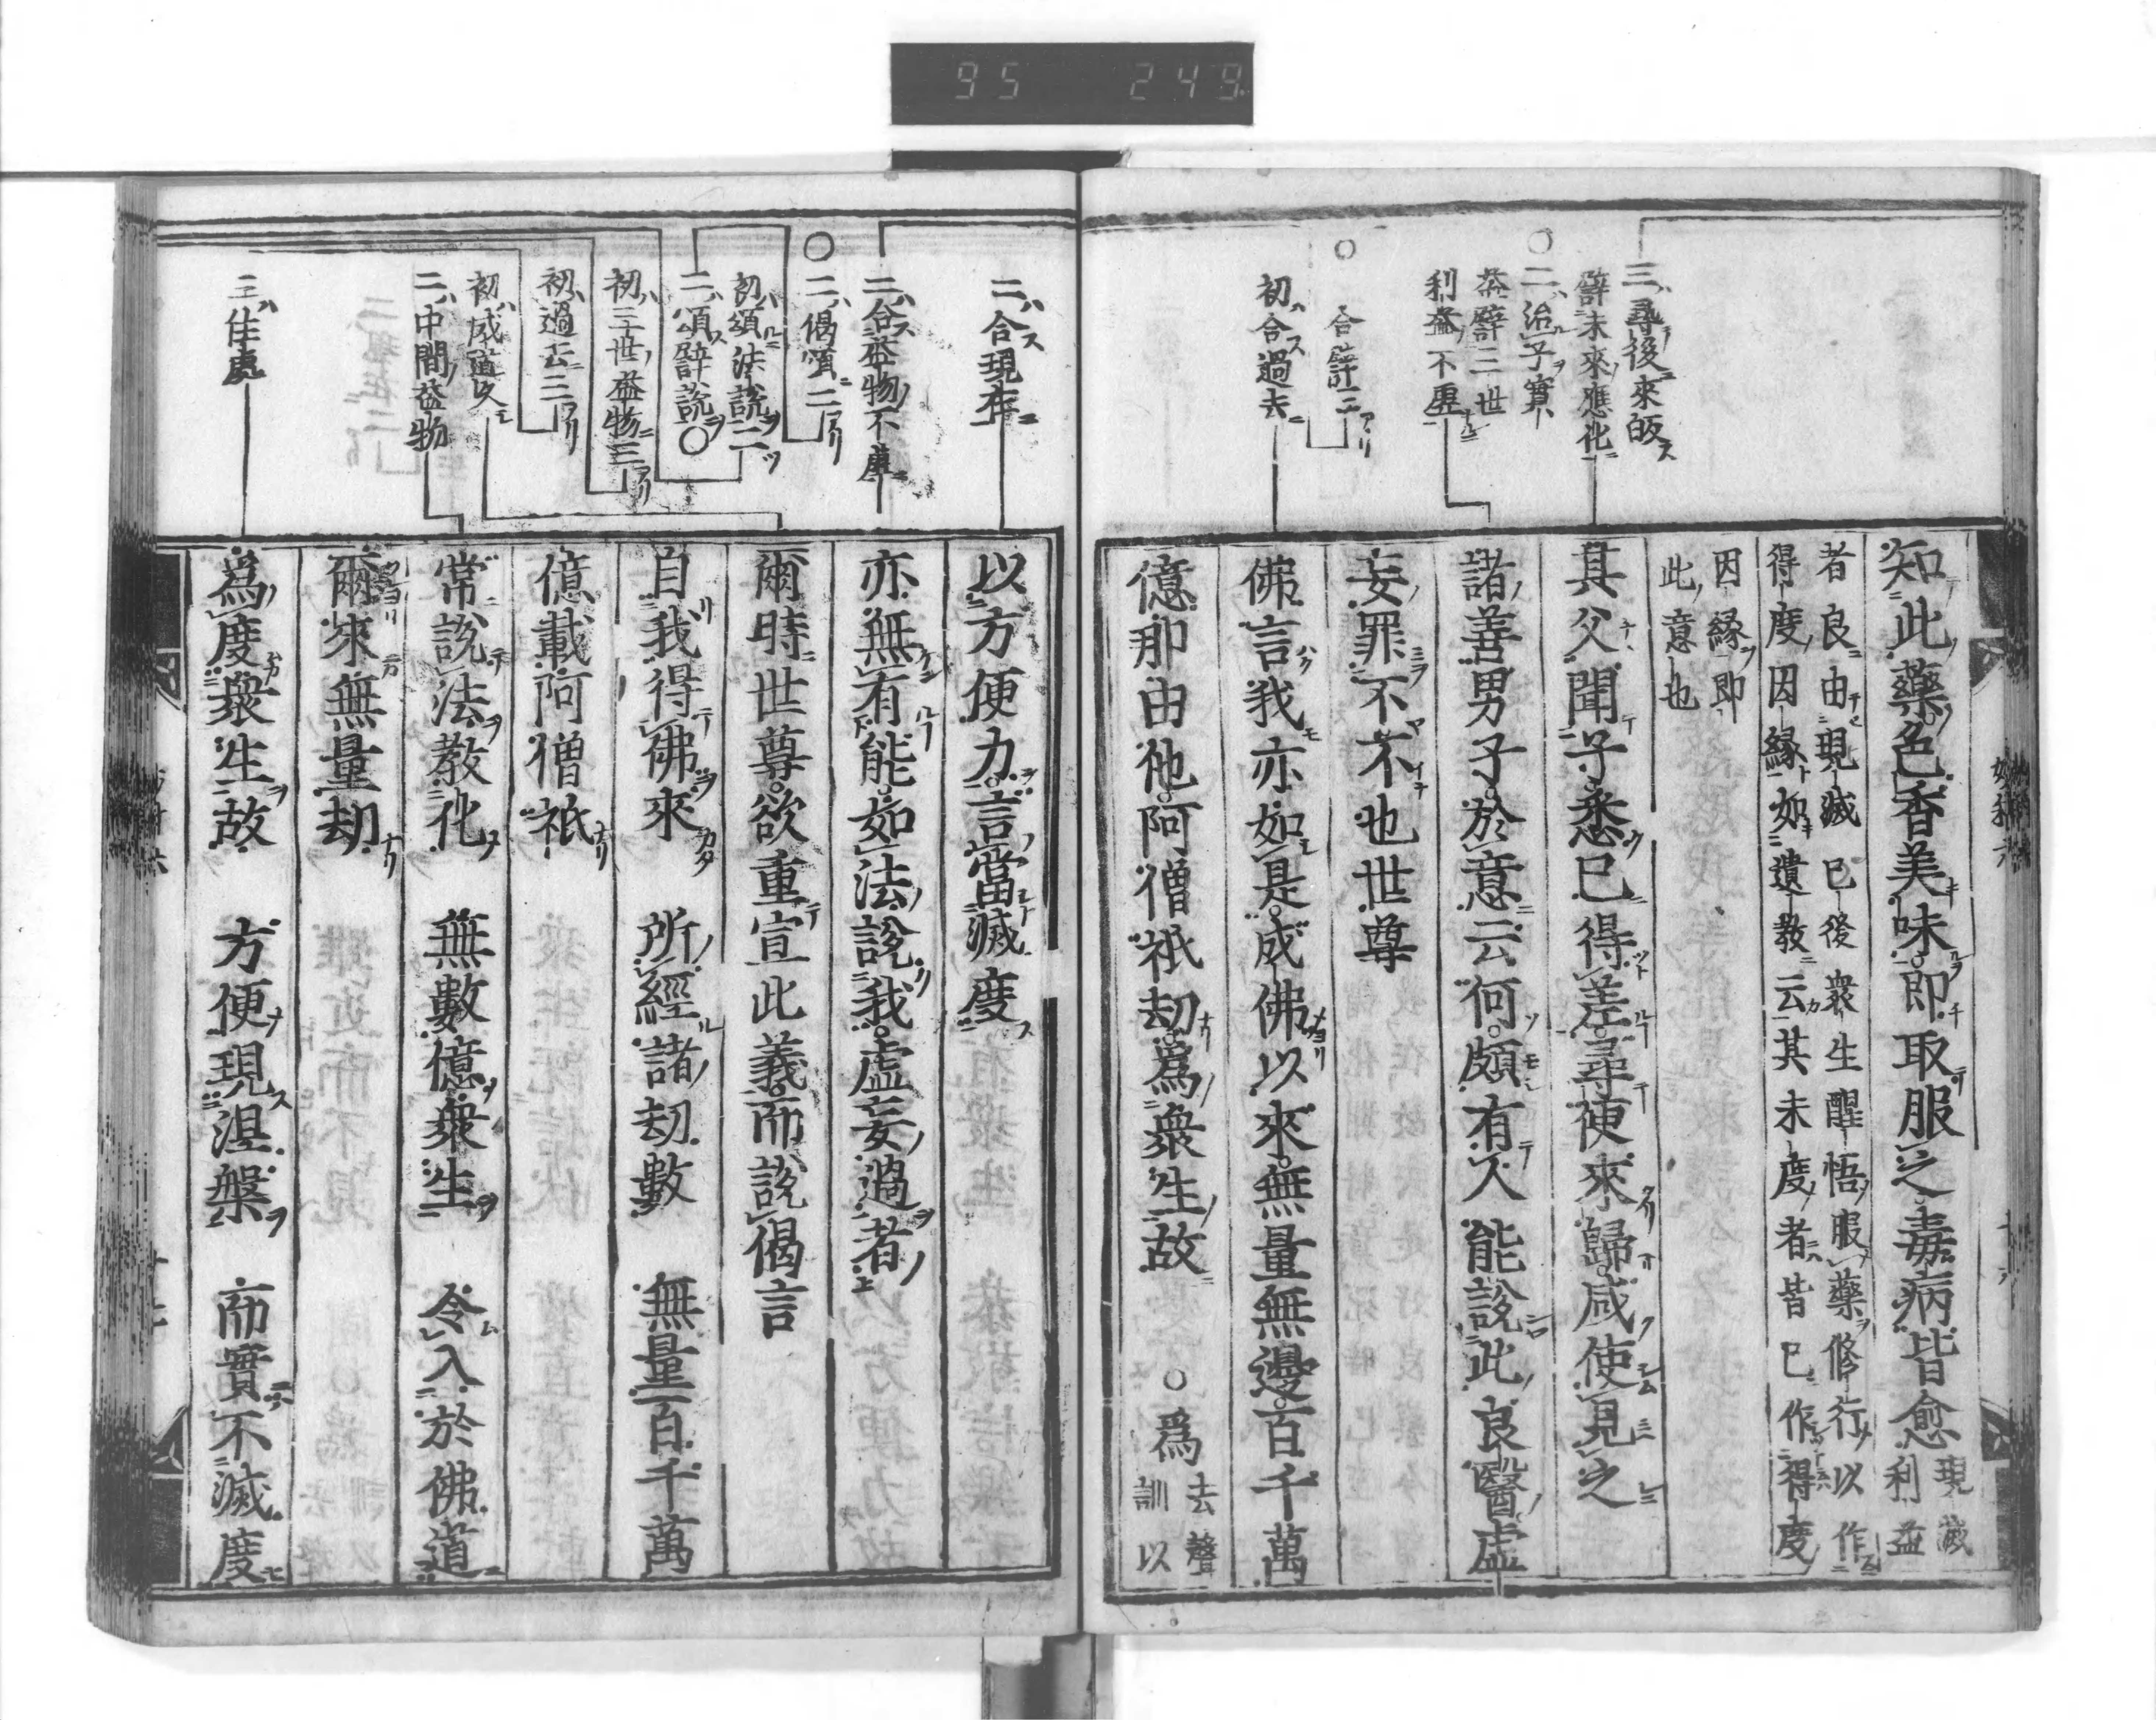 95 249
三ハ尋後來皈ス
譬未來應化
二ハ治子實
益譬三世
利益不虛
合譬二アリ
初ハ合ス過去ニ
知此藥色香美味即取服之毒病皆愈
現滅
利益
者良由現滅已後衆生醒悟服藥修行以作
得度因緣如遺教云其未度者皆已作得度
因緣即
此意也
其父聞子悉已得差尋便來歸咸使見之
諸善男子於意云何頗有人能說此良醫虛
妄罪不不也世尊
佛言我亦如是成佛以來無量無邊百千萬
億那由他阿僧祇劫爲衆生故 ○爲
去聲
訓以
二ハ合ス現在ニ
二ハ合ス益物不虛
二ハ偈頌ニ二アリ
初ハ頌法說ヲ二ツ
二ハ頌ス譬說ヲ○
初ハ三世益物ニ三アリ
初ハ過去ニ三アリ
初ハ成道久
二ハ中間益物
三ハ住處
以方便力言當滅度
亦無有能如法說我虛妄過者
爾時世尊欲重宣此義而說偈言
自我得佛來 所經諸劫數 無量百千萬
億載阿僧祇
常說法教化 無數億衆生 令入於佛道
爾來無量劫
爲度衆生故 方便現涅槃 而實不滅度